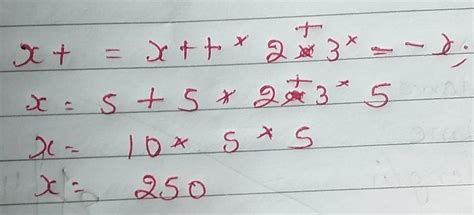 x+ = x++ * 2+3* = -x;
x = 5 + 5 * 2+3* 5
x = 10 * 5 * 5
x = 250